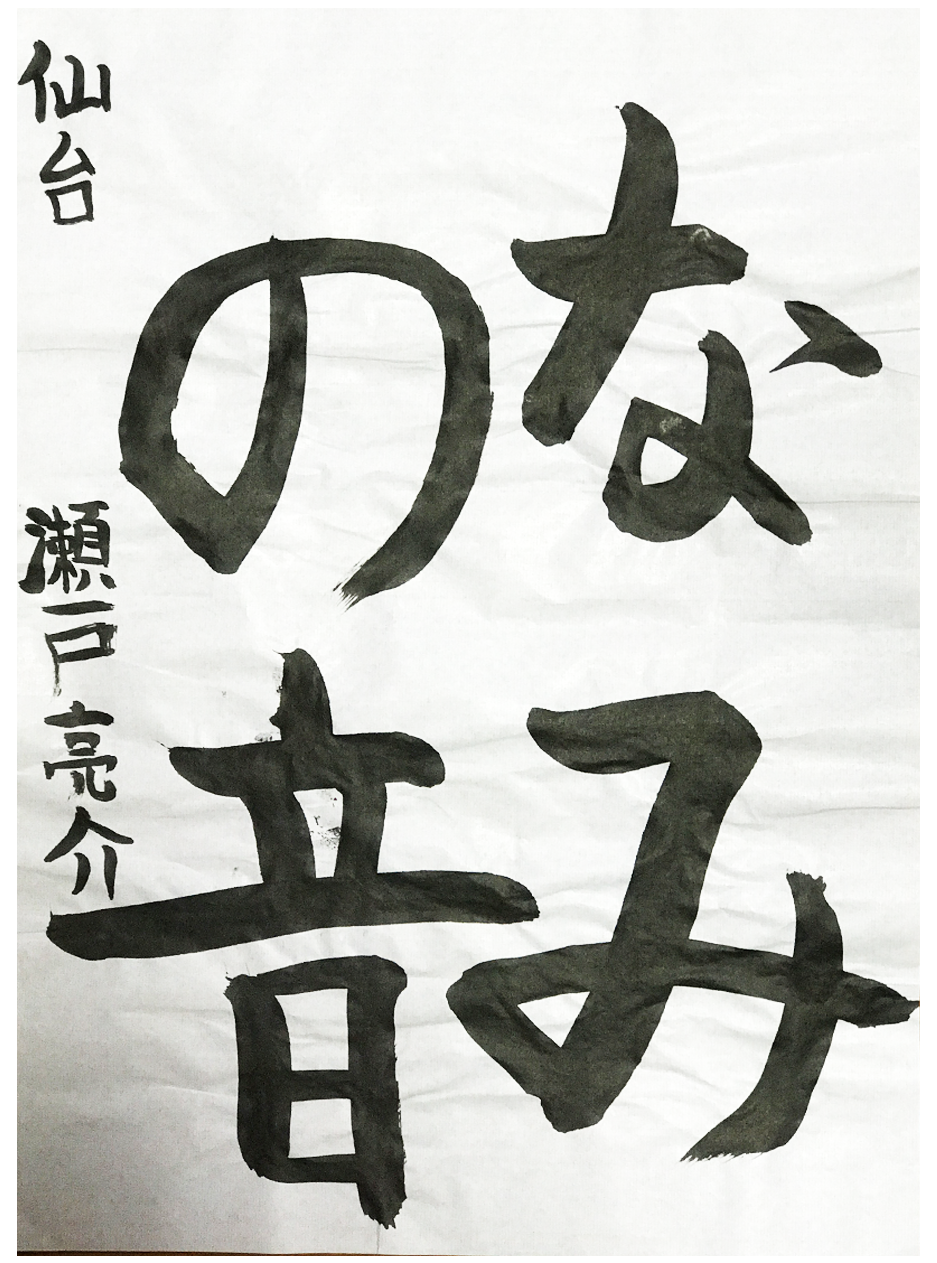 なみ
の音
仙台 瀬戸亮介